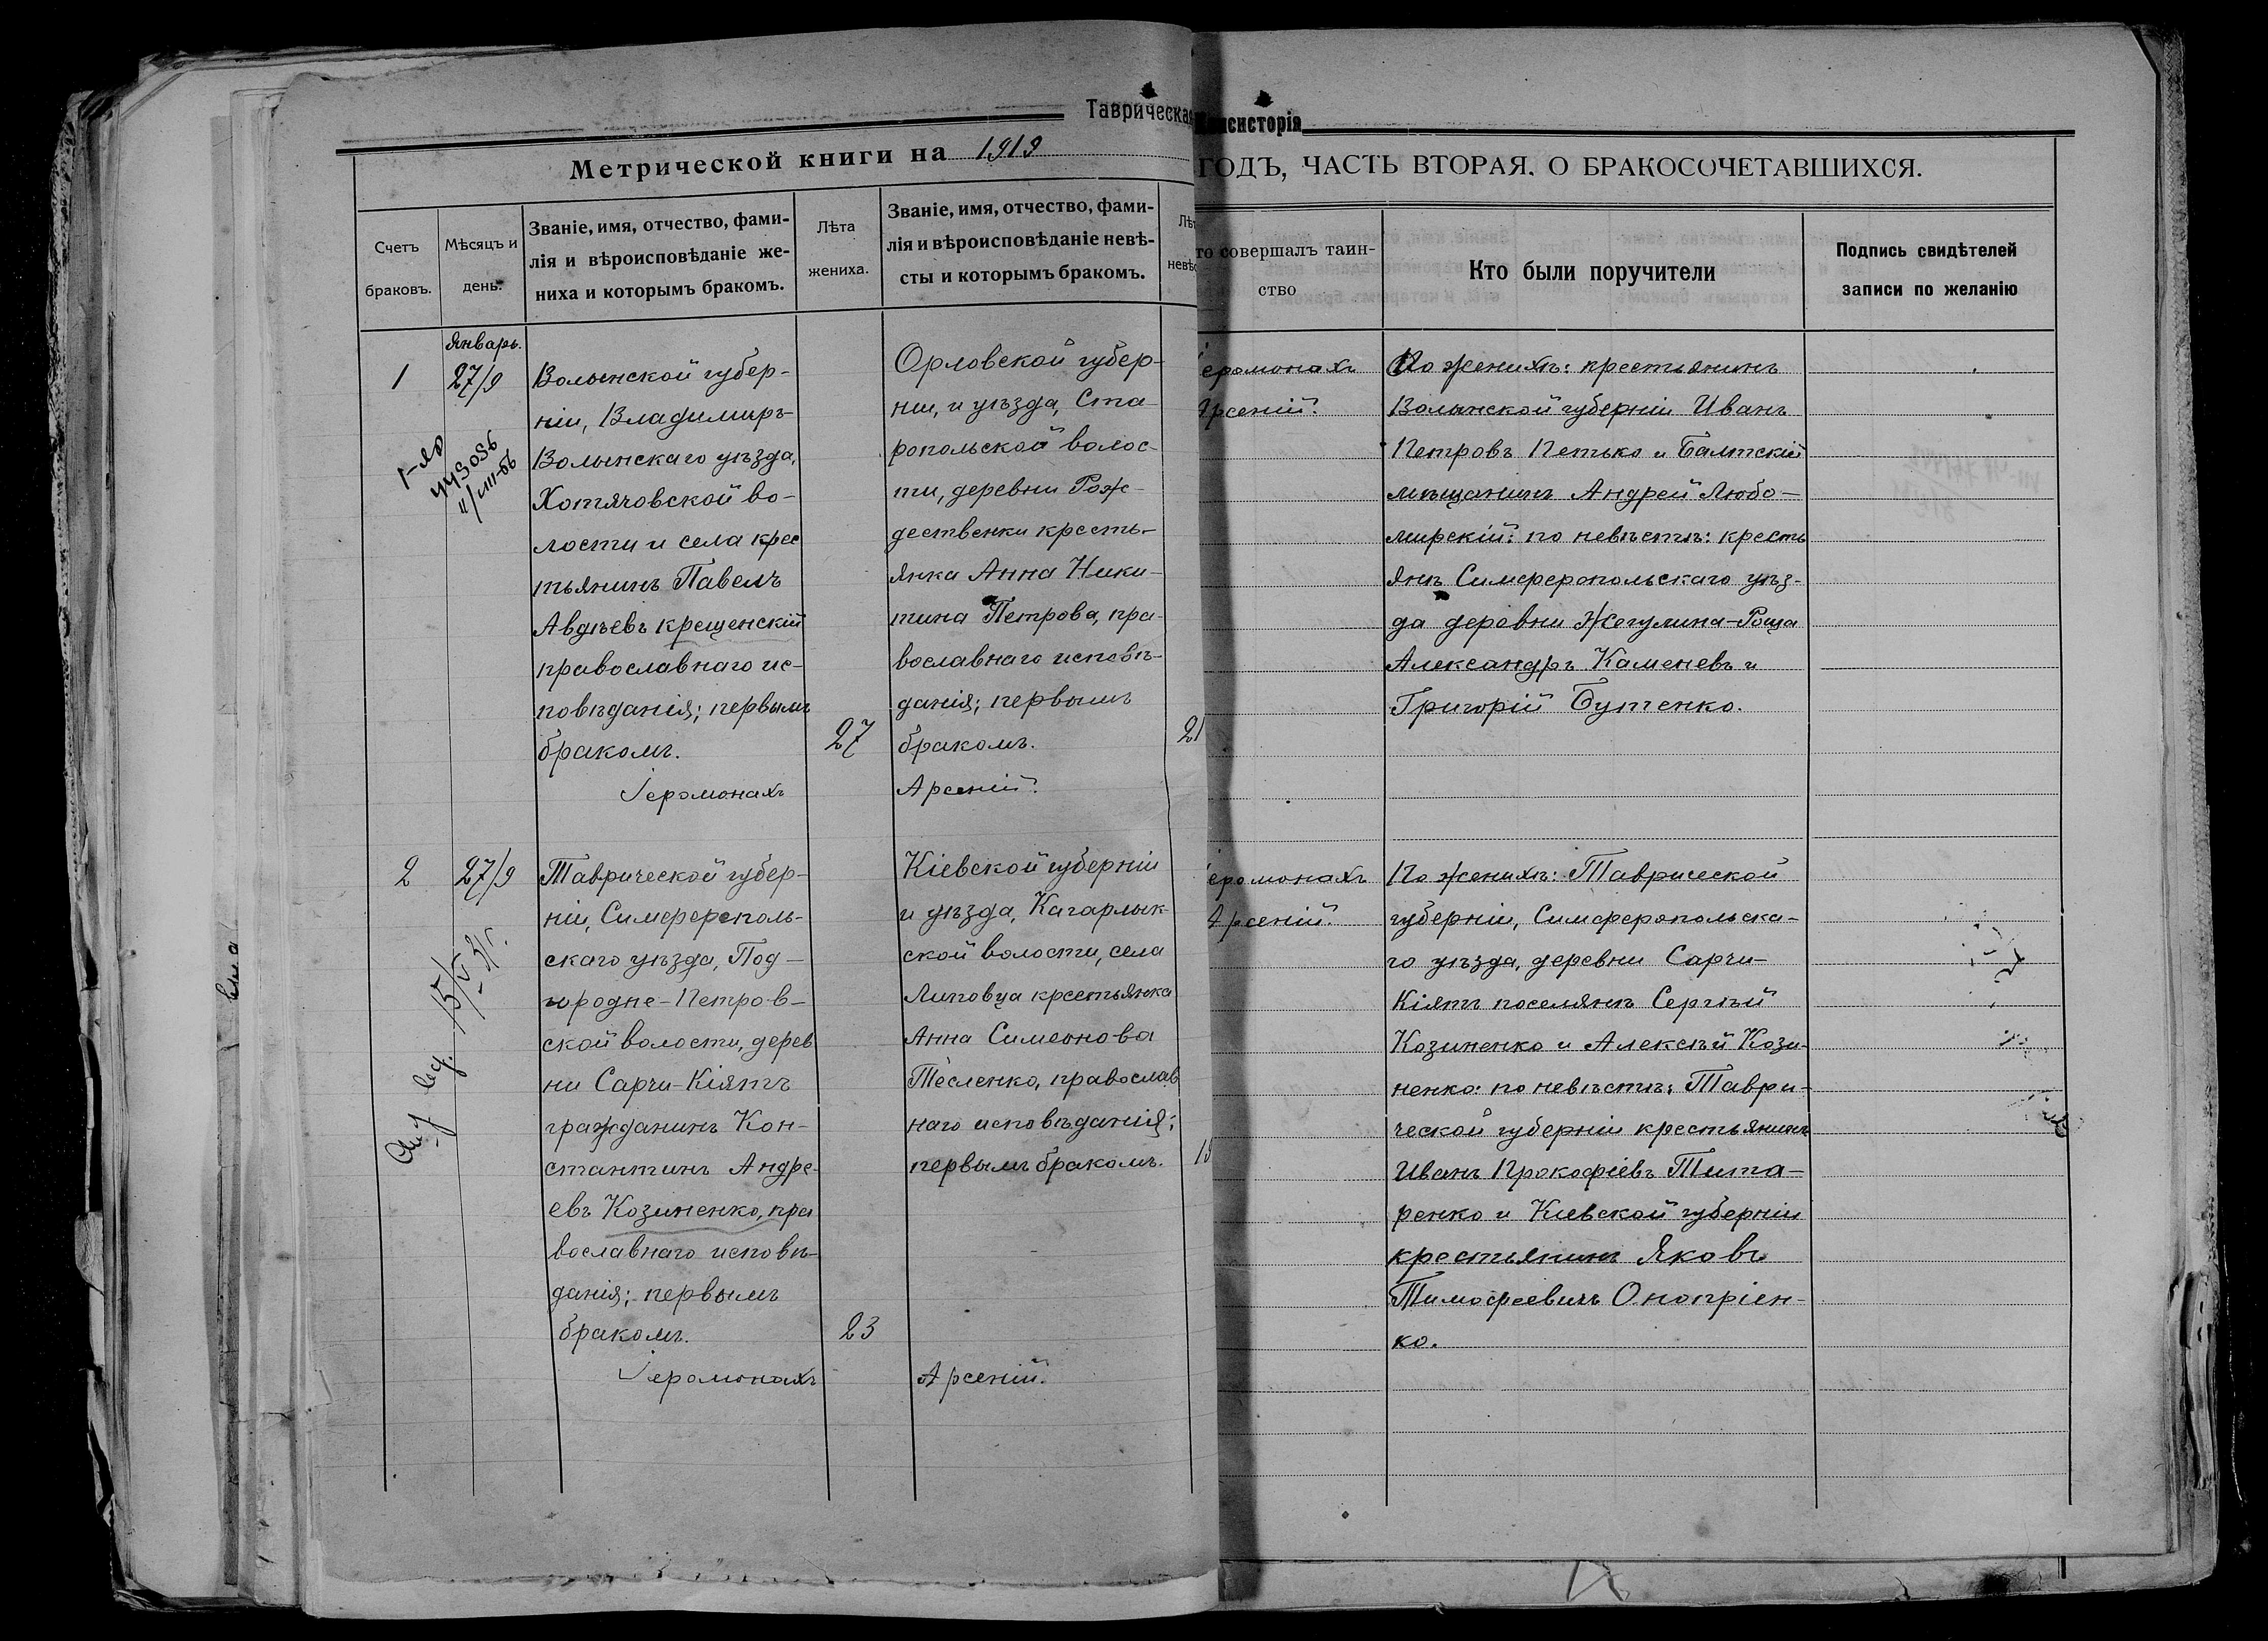 Таврическая Консисторія
Метрической книги на 1919
ГОДЪ, ЧАСТЬ ВТОРАЯ. О БРАКОСОЧЕТАВШИХСЯ.
Счетъ
браковъ.
Мѣсяцъ и
день.
Званіе, имя, отчество, фами-
лія и вѣроисповѣданіе же-
ниха и которымъ бракомъ.
Лѣта
жениха.
Званіе, имя, отчество, фами-
лія и вѣроисповѣданіе невѣ-
сты и которымъ бракомъ.
Лѣт
невѣс
то совершалъ таин-
ство
Кто были поручители
Подпись свидѣтелей
записи по желанію
Январь.
1
27/9
Волынской губер-
ніи, Владимиръ-
Волынскаго уѣзда,
Хотячовской во-
лости и села крес
тьянинъ Павелъ
Авдѣевъ крещенскій
православнаго ис-
повѣданія; первымъ
бракомъ.
27
Іеромонахъ
Орловской губер-
ніи, и уѣзда, Ста-
ропольской волос-
ти, деревни Рож-
дественки кресть-
янка Анна Ники-
тина Петрова, пра-
вославнаго исповѣ-
данія; первымъ
бракомъ.
21
Арсеній.
еромонахъ
Арсеній.
По женихѣ: крестьянинъ
Волынской губерніи Иванъ
Петровъ Петько и Балтскій
мѣщанинъ Андрей Любо-
мирскій: по невѣстѣ: кресть
янѣ Симферопольскаго уѣз-
да деревни Жегулина-Роща
Александръ Каменевъ и
Григорій Бутенко.
2
27/9
Таврической губер-
ніи, Симферополь-
скаго уѣзда, Под-
городне-Петров-
ской волости, дерев
ни Сарчи-Кіятъ
гражданинъ Кон-
стантинъ Андре-
евъ Козиненко, пра
вославнаго исповѣ-
данія; первымъ
бракомъ.
23
Іеромонахъ
Кіевской губерніи
и уѣзда, Кагарлык-
ской волости, села
Липовца крестьянка
Анна Симеонова
Тесленко, православ
наго исповѣданія;
первымъ бракомъ.
Арсеній.
еромонахъ
Арсеній.
По женихѣ: Таврической
губерніи, Симферопольска-
го уѣзда, деревни Сарчи-
Кіятъ поселянѣ Сергѣй
Козиненко и Алексѣй Кози-
ненко: по невѣстѣ: Таври-
ческой губерніи крестьянинъ
Иванъ Прокофіевъ Тита-
ренко и Кіевской губерніи
крестьянинъ Яковъ
Тимофеевичъ Оноприен-
ко.